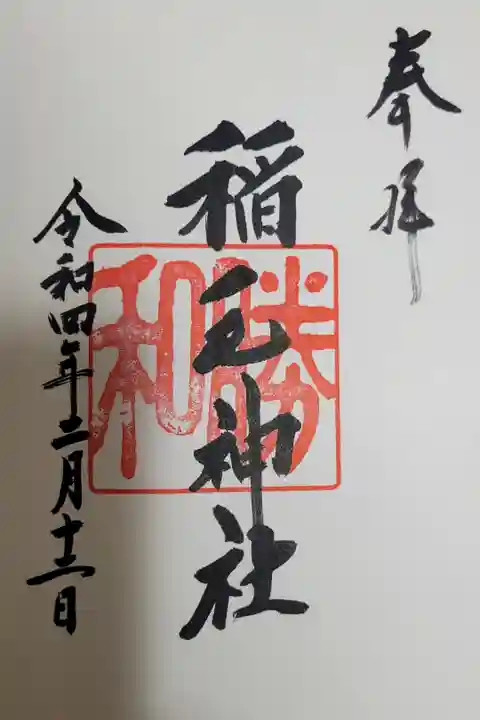 奉拝
稲毛神社
勝和
令和四年二月十三日